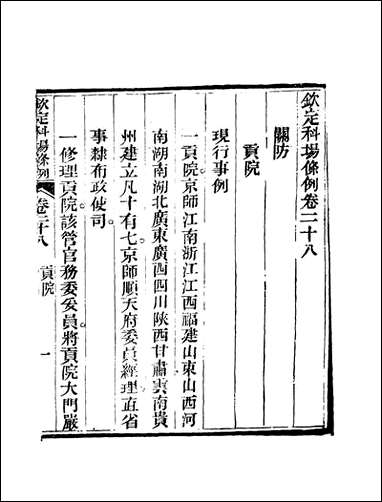 欽定科場條例卷二十八
關防
貢院
現行事例
一貢院京師江南浙江江西福建山東山西河
南湖南湖北廣東廣西四川陝西甘肅雲南貴
州建立凡十有七京師順天府委員經理直省
事隸布政使司
一修理貢院該管官務委妥員將貢院大門嚴
欽定科場條例 卷二十八 貢院 一